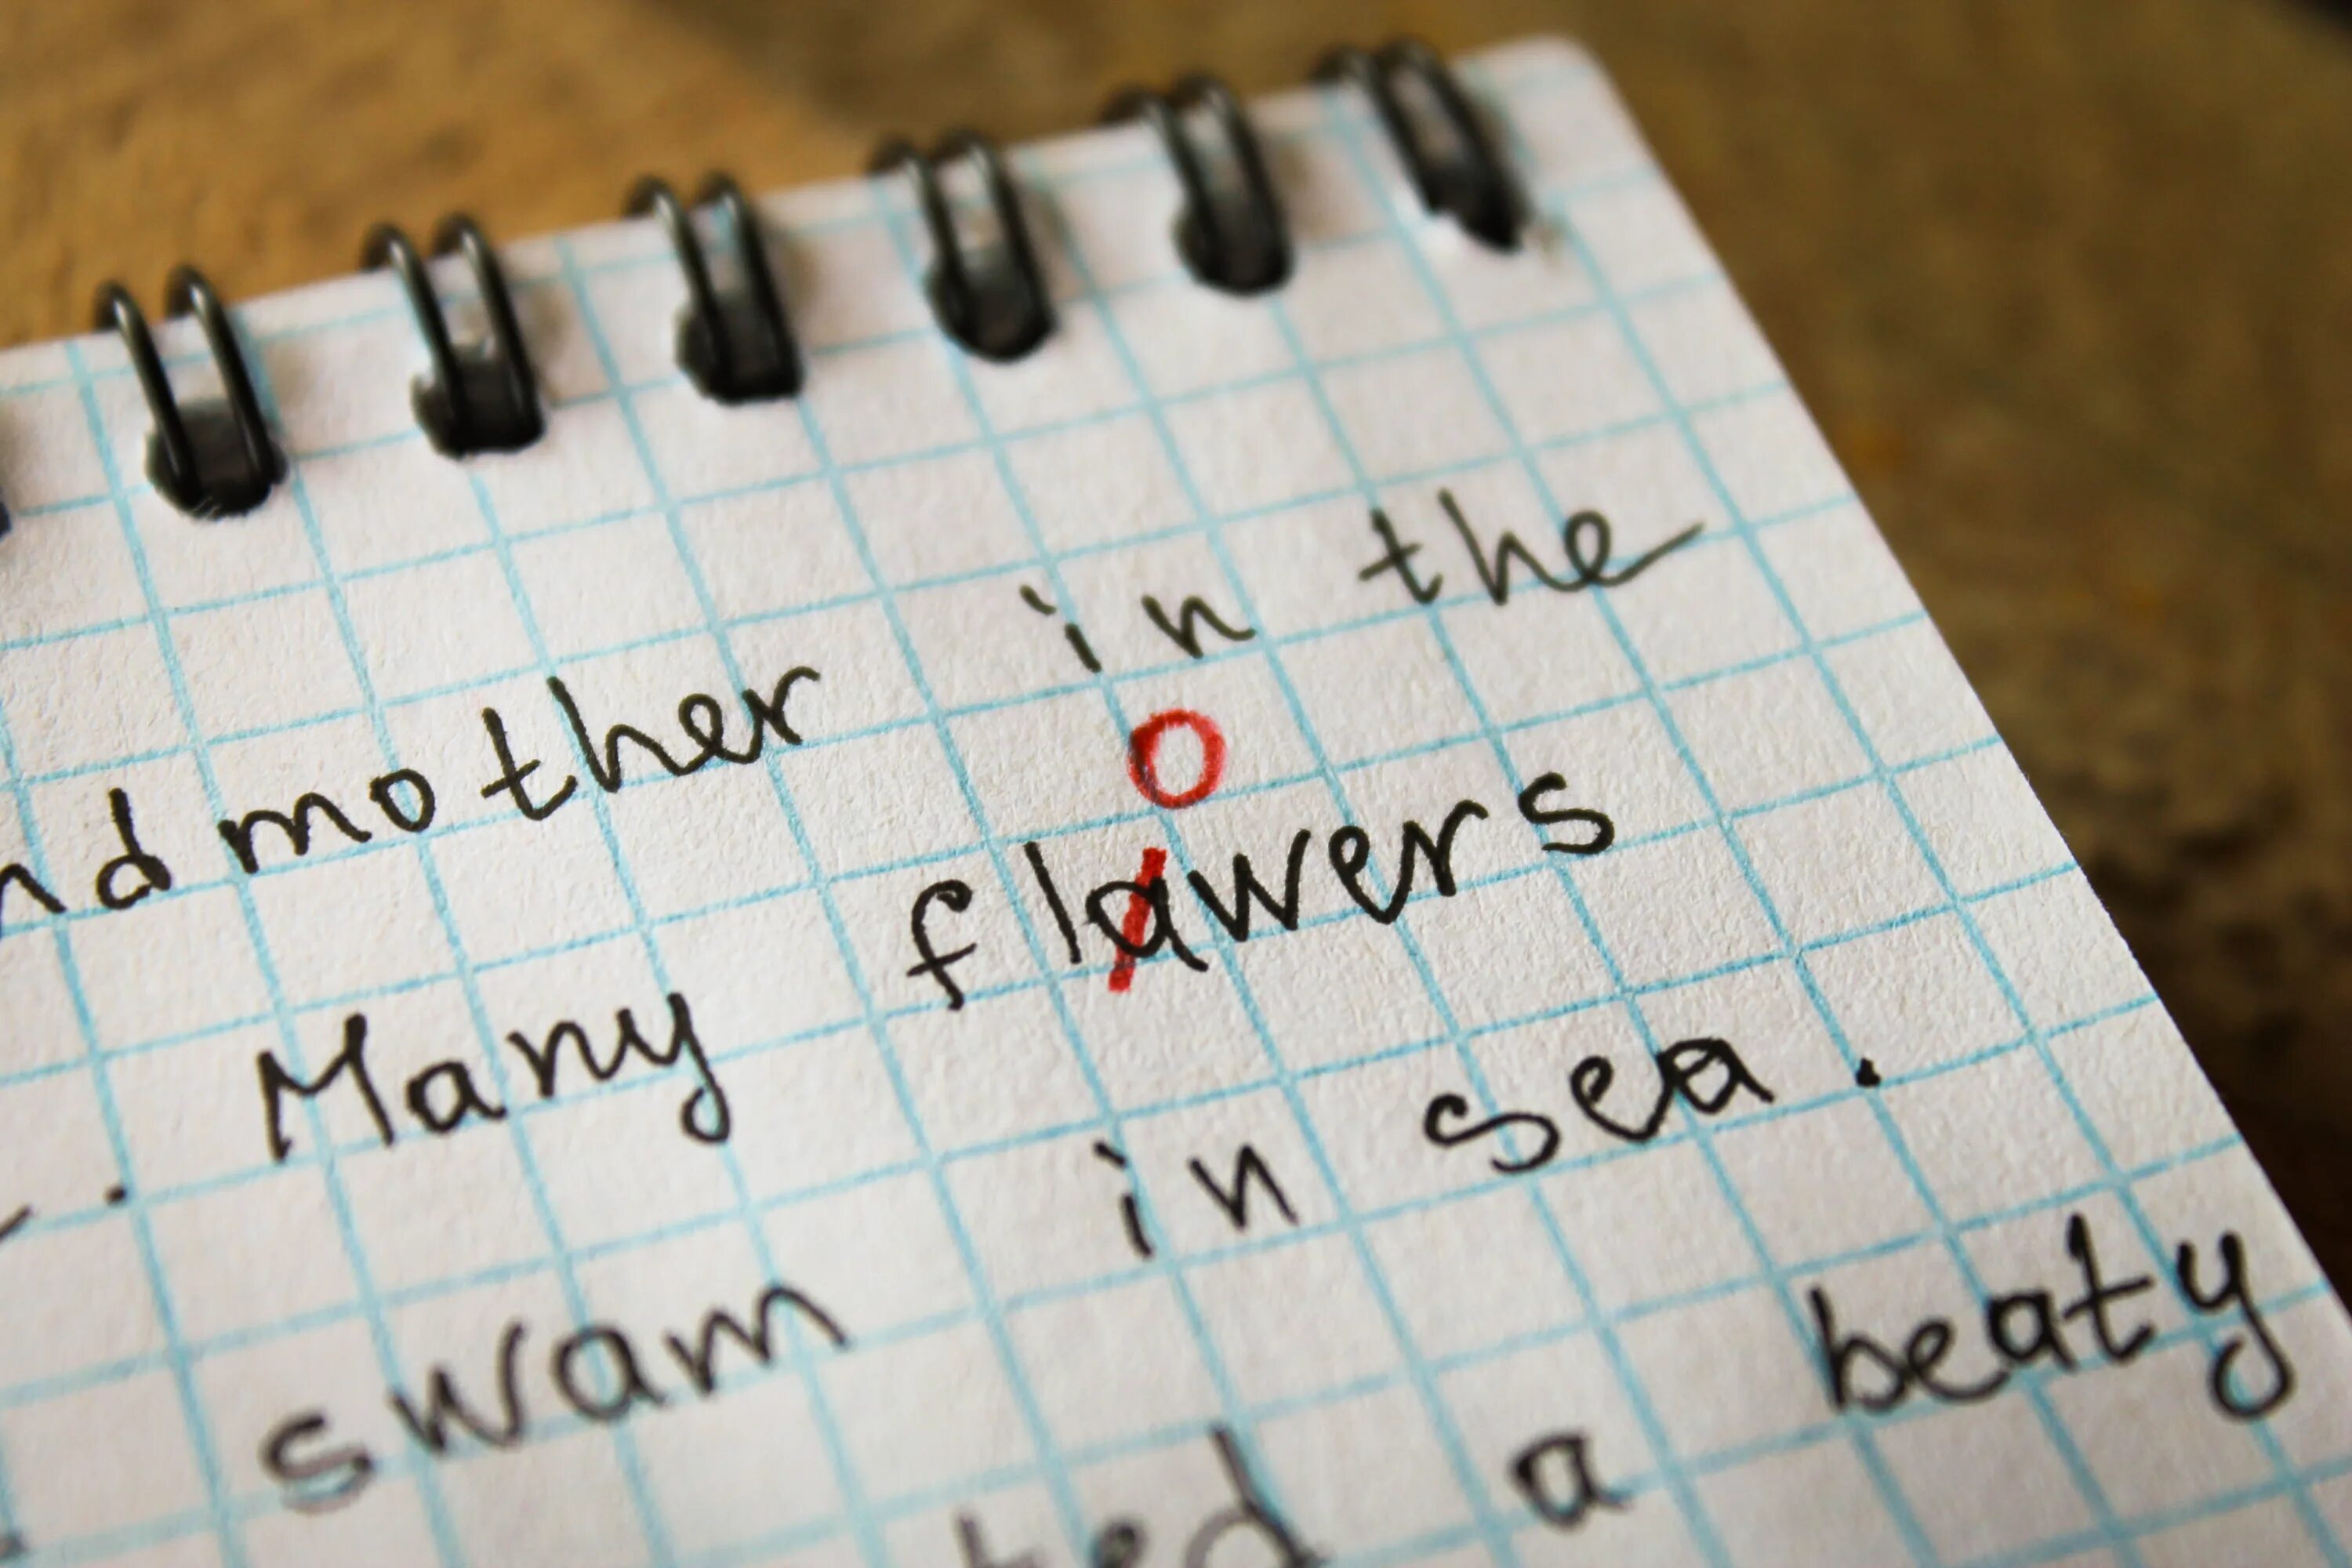 ndmother in the
o
Many flawers
swam in sea.
ted a beaty